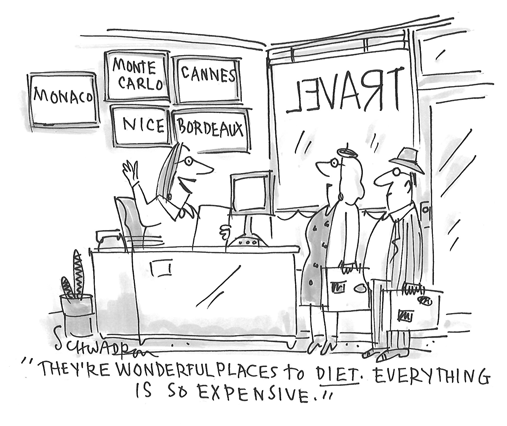 MONACO
MONTE
CARLO
CANNES
NICE
BORDEAUX
TRAVEL
SCHWADRON
"THEY'RE WONDERFUL PLACES TO DIET. EVERYTHING
IS SO EXPENSIVE."